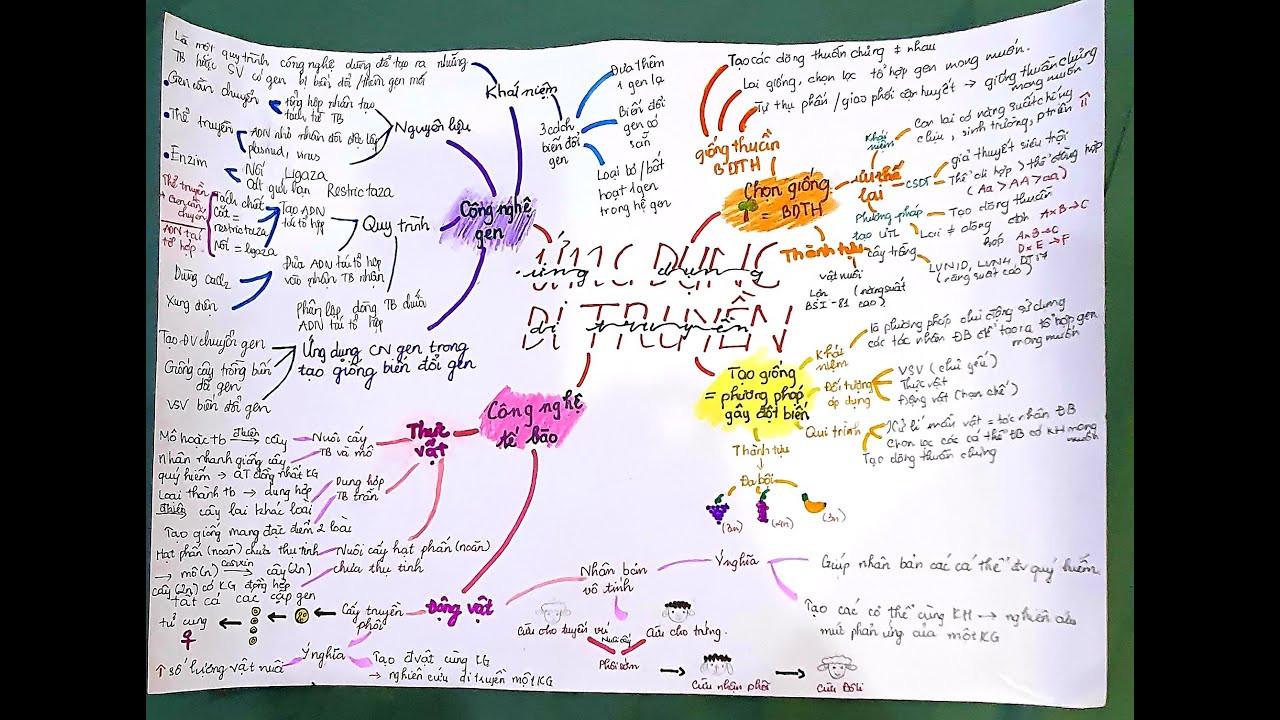 ỨNG DỤNG
ứng dụng
DI TRUYỀN
di truyền
Công nghệ
gen
Khái niệm
Là một quy trình công nghệ dùng để tạo ra những
TB hoặc SV có gen bị biến đổi/thêm gen mới
3 cách
biến đổi
gen
Đưa thêm
1 gen lạ
Biến đổi
gen có
sẵn
Loại bỏ/bất
hoạt 1 gen
trong hệ gen
Nguyên liệu
Gen cần chuyển
tổng hợp nhân tạo
tách từ TB
Thể truyền
ADN nhỏ nhân đôi độc lập
plasmid, virus
Enzim
Nối Ligaza
Cắt giới hạn Restrictaza
Quy trình
Tạo ADN
tái tổ hợp
Tách chiết
Cắt =
restrictaza
Nối = ligaza
Thể truyền
+ Gen cần
chuyển
ADN tái
tổ hợp
Đưa ADN tái tổ hợp
vào nhận TB nhận
Dùng CaCl2
Xung điện
Phân lập dòng TB chứa
ADN tái tổ hợp
Ứng dụng CN gen trong
tạo giống biến đổi gen
Tạo ĐV chuyển gen
Giống cây trồng biến
đổi gen
VSV biến đổi gen
Công nghệ
tế bào
Thực
vật
Nuôi cấy
TB và mô
Mô hoặc tb cây
Nhân nhanh giống cây
quý hiếm → ĐT đồng nhất KG
Dung hợp
TB trần
Loại thành tb → dung hợp
cây lai khác loài
Tạo giống mang đặc điểm 2 loài
Nuôi cấy hạt phấn (noãn)
chưa thụ tinh
Hạt phấn (noãn) chưa thụ tinh
→ mô(n) cosixin cây(2n)
cây (2n) có KG đồng hợp
tất cả các cặp gen
Động vật
Cấy truyền
phôi
tử cung
♀
Ý nghĩa
↑ số lượng vật nuôi
Tạo đ.vật cùng KG
→ nghiên cứu di truyền một KG
Nhân bản
vô tính
Cừu cho tuyến vú
Cừu cho trứng.
Nuôi cấy
Phôi sớm
Cừu nhận phôi
Cừu Đôli
Ý nghĩa
Giúp nhân bản các cá thể đv quý hiếm
Tạo các cá thể cùng KH → nghiên cứu
mức phản ứng của một KG
Chọn giống
= BDTH
giống thuần
BDTH
Tạo các dòng thuần chủng ≠ nhau
Lai giống, chọn lọc tổ hợp gen mong muốn.
Tự thụ phấn/giao phối cận huyết → giống thuần chủng
mong muốn
Ưu thế
lai
Khái
niệm
Con lai có năng suất chống
chịu, sinh trưởng, ptriển ⇈
CSDT
giả thuyết siêu trội
Thể dị hợp > thể đồng hợp
(Aa > AA > aa)
Phương pháp
tạo ƯTL
Tạo dòng thuần
Lai ≠ dòng
đơn A x B → C
kép A x B → C
D x E → F
Thành tựu
cây trồng
LVN10, LVN4, DT17
(năng suất cao)
vật nuôi
Lợn (năng suất
BSI-81 cao)
Tạo giống
= phương pháp
gây đột biến
Khái
niệm
là phương pháp chủ động sử dụng
các tác nhân ĐB để tạo ra tổ hợp gen
mong muốn
Đối tượng
áp dụng
VSV (chủ yếu)
Thực vật
Động vật (hạn chế)
Qui trình
Xử lí mẫu vật = tác nhân ĐB
Chọn lọc các cá thể ĐB có KH mong
muốn
Tạo dòng thuần chủng
Thành tựu
Đa bội
(3n)
(4n)
(3n)